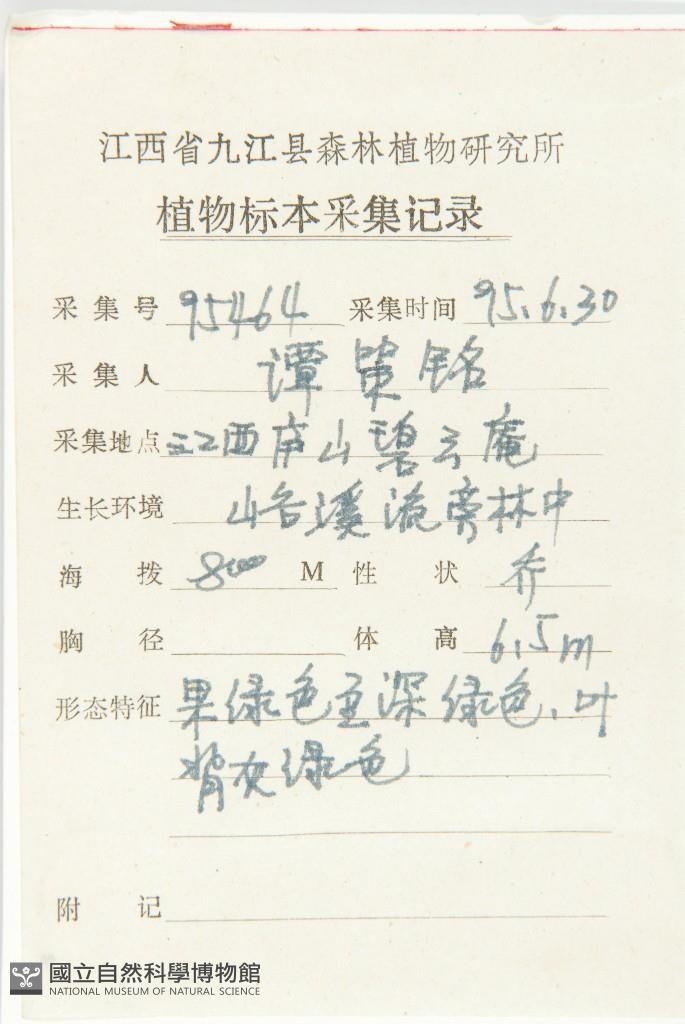 江西省九江县森林植物研究所
植物标本采集记录
采集号 95464 采集时间 95.6.30
采集人 谭策铭
采集地点 江西庐山碧云庵
生长环境 山谷溪流旁林中
海拨 800 M 性状 乔
胸径 体高 6.5m
形态特征 果绿色至深绿色、叶
背灰绿色
附记
國立自然科學博物館
NATIONAL MUSEUM OF NATURAL SCIENCE